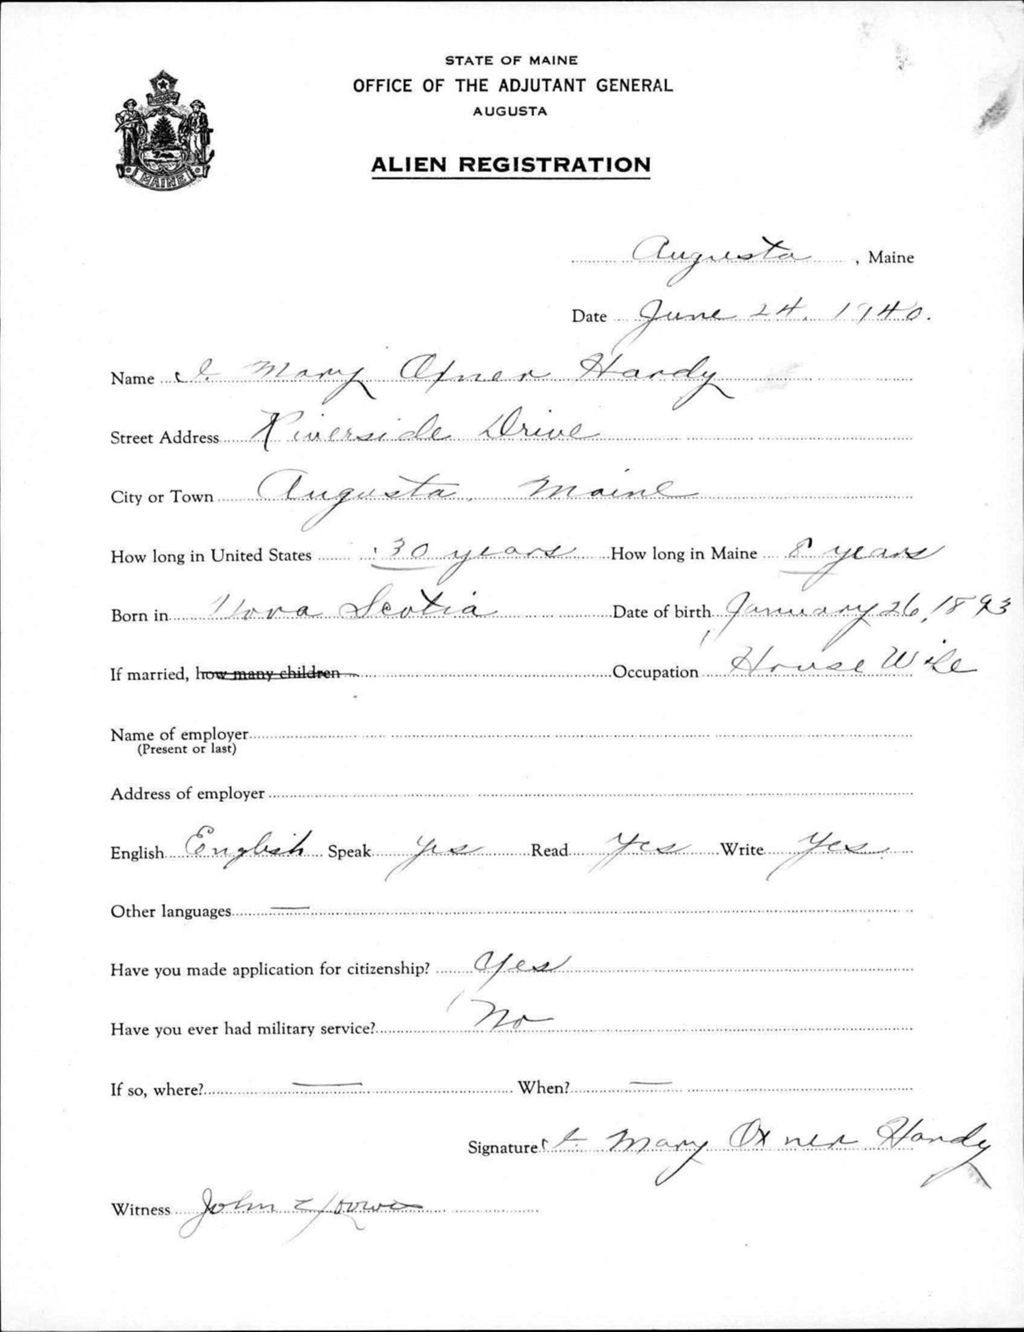 STATE OF MAINE
OFFICE OF THE ADJUTANT GENERAL
AUGUSTA
MAINE
ALIEN REGISTRATION
Augusta, Maine
Date June 24, 1940.
Name I. Mary Oxner Hardy
Street Address Riverside Drive
City or Town Augusta, Maine
How long in United States 30 years How long in Maine 8 years
Born in Nova Scotia Date of birth January 26, 1893
If married, how many children Occupation House Wife
Name of employer
(Present or last)
Address of employer
English English Speak yes Read Yes Write Yes
Other languages —
Have you made application for citizenship? Yes
Have you ever had military service? No
If so, where? — When? —
Signature I. Mary Oxner Hardy
Witness John